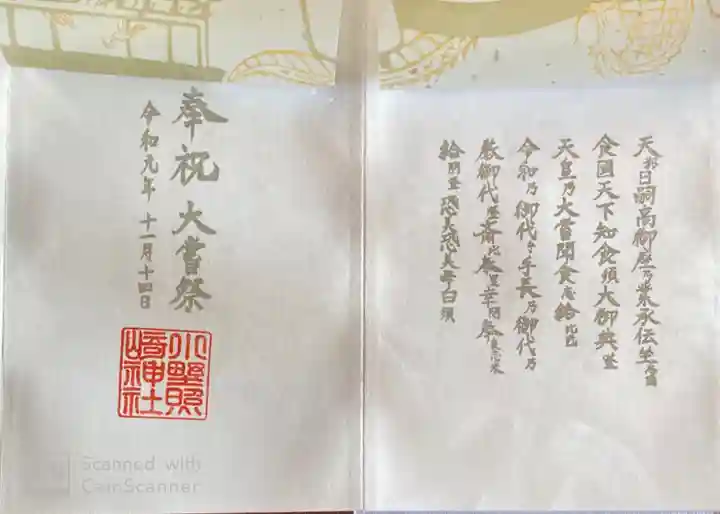 天都日嗣高御座乃業承伝坐
食国天下知食須大御典坐
天皇乃大嘗聞食志給比氐
令和乃御代乎手長乃御代乃
厳御代登斎比奉里幸閇奉
給閇登恐美恐美毛白須
奉祝 大嘗祭
令和元年 十一月十四日
小野照
崎神社
Scanned with
CamScanner